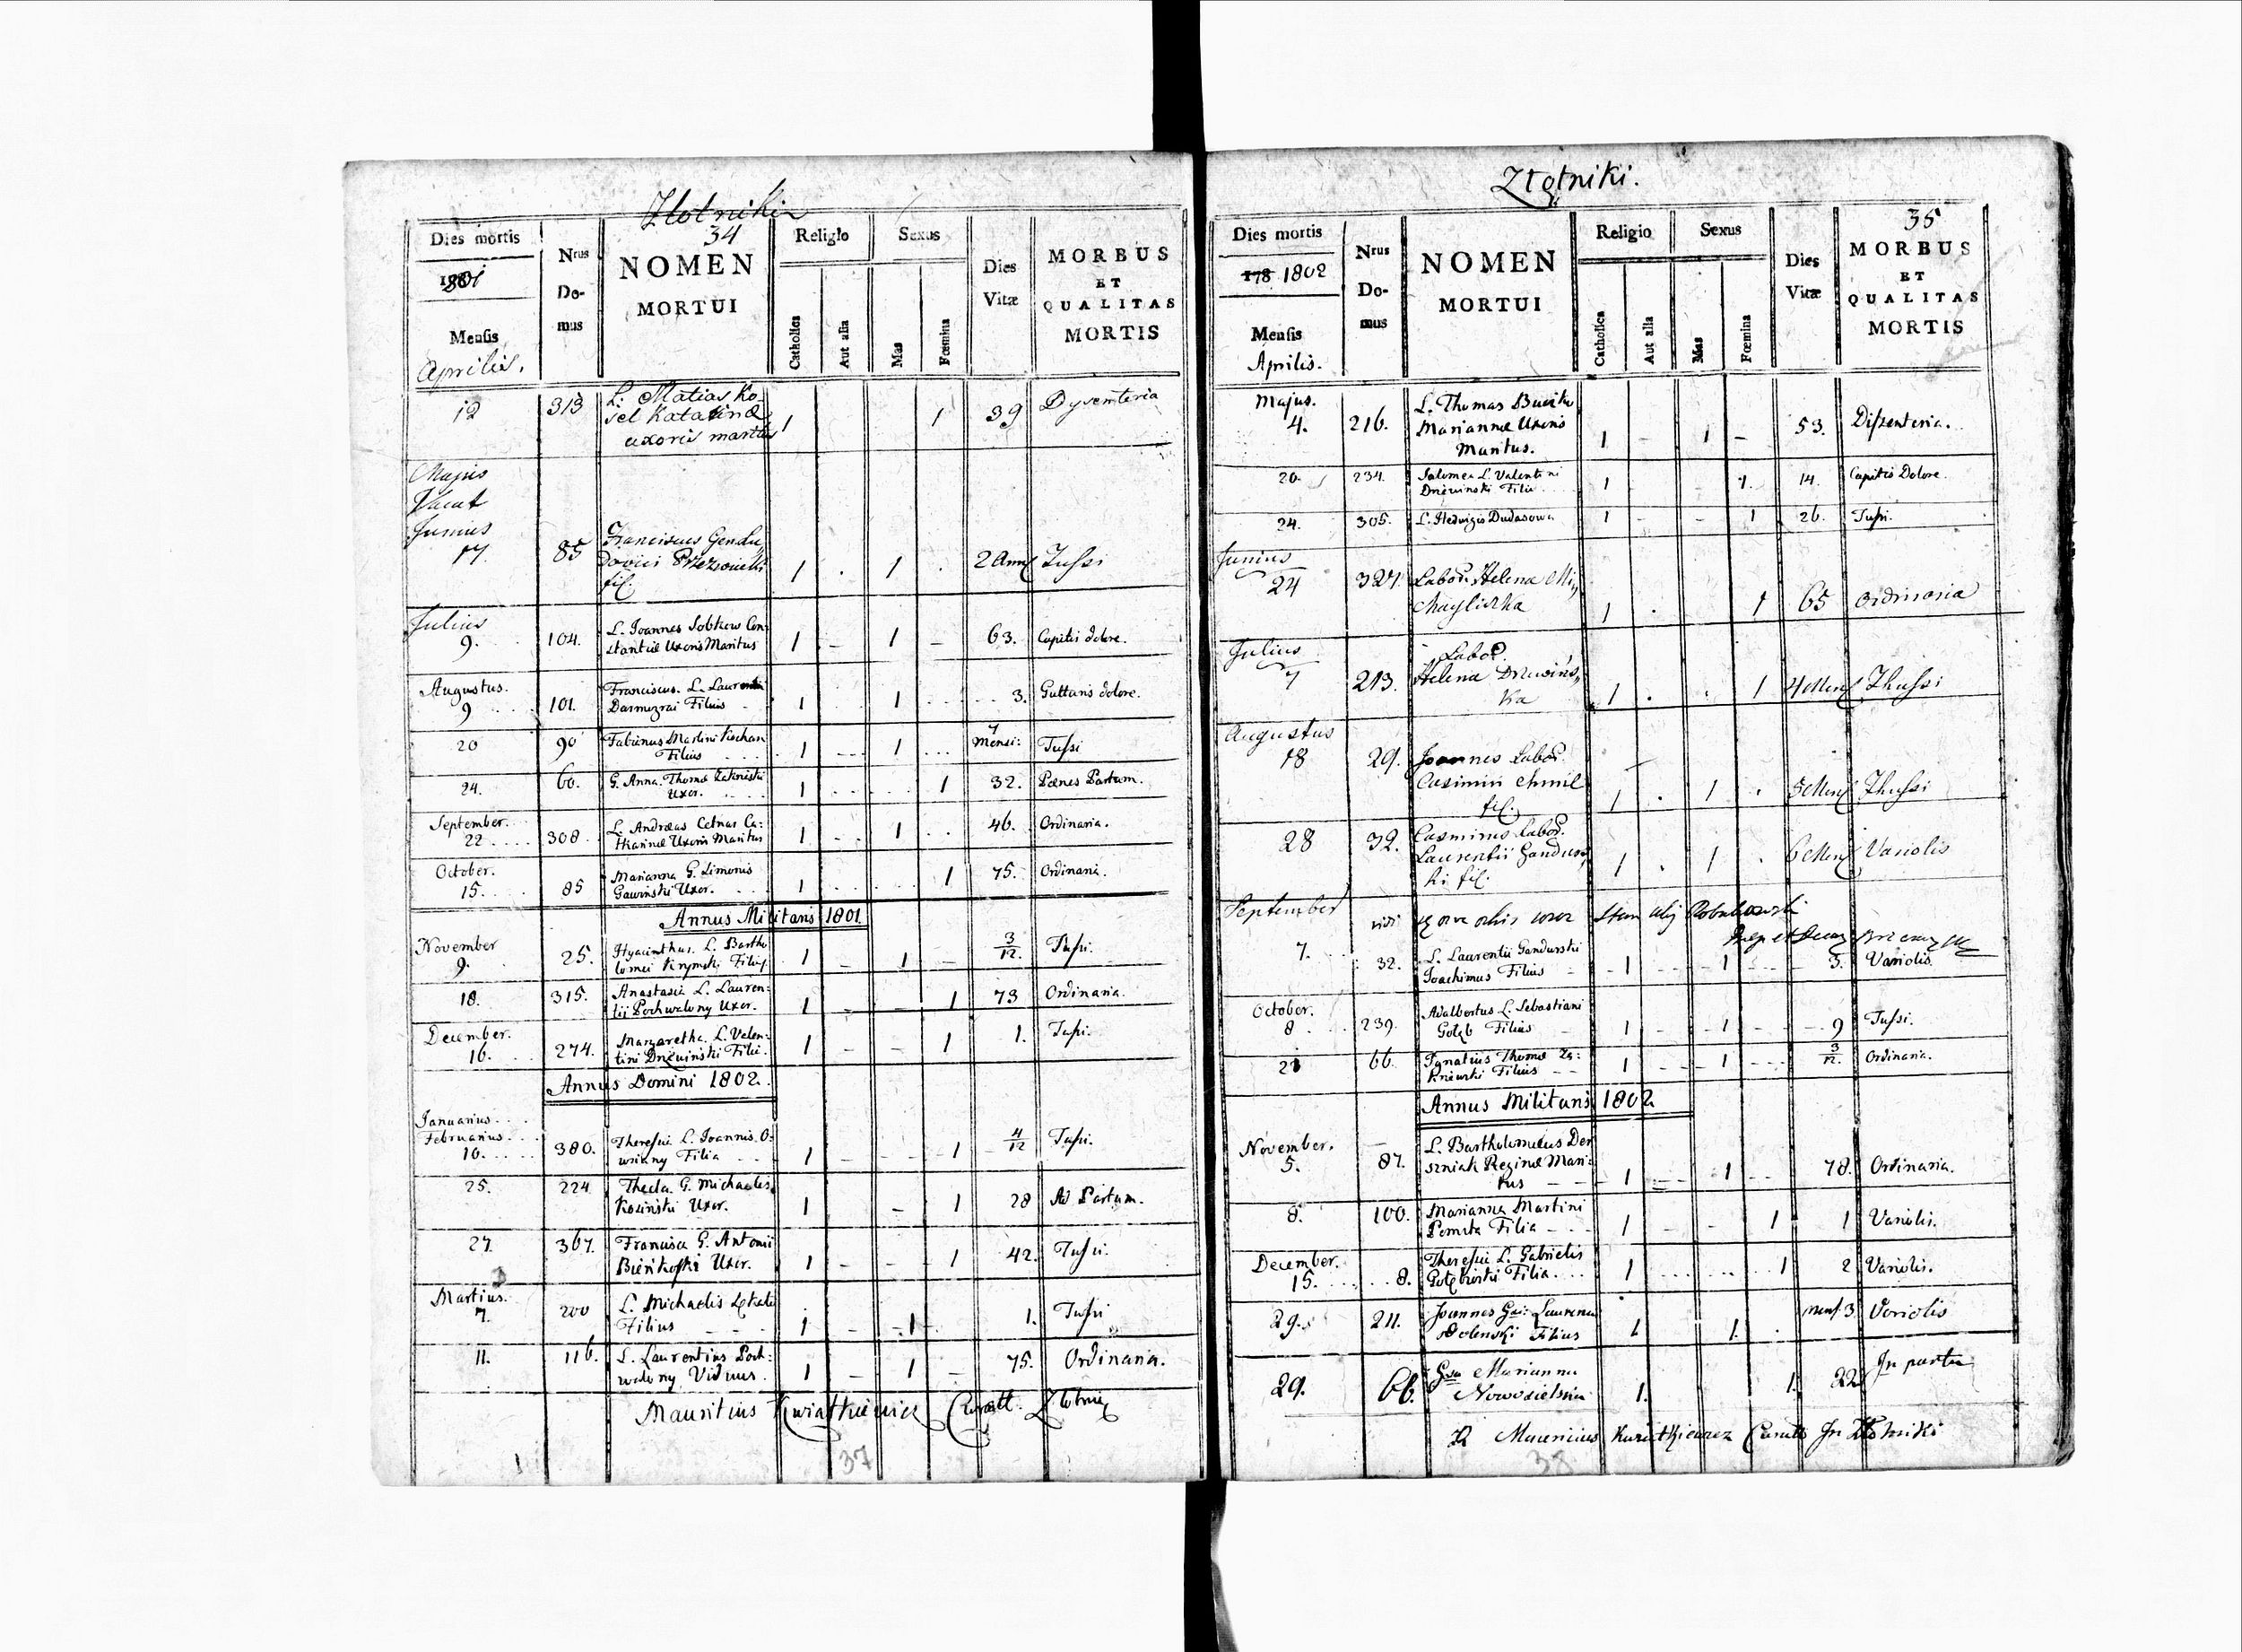 Złotniki
34
Dies mortis
1801
Mensis
Aprilis.
Nrus Domus
NOMEN
MORTUI
Religio
Catholica
Aut alia
Sexus
Mas
Fœmina
Dies
Vitæ
MORBUS
ET
QUALITAS
MORTIS
12 313 L. Matias Ko-
sel Katarinæ
uxoris maritus 1 1 39 Dysenteria
Majus
Vacat
Junius
17. 85 Franciscus
fil. 1 . 1 . 2 Ann Tussi
Julius
9. 104. L. Joannes Sobkow Con:
stantiæ Uxoris Maritus 1 - 1 - 63. Capitis dolore.
Augustus.
9 101. Franciscus L. Laurentii
Filius 1 1 3. Gutturis dolore.
20 90 Fabianus Martini
Filius 1 1 7 Mensi: Tussi
24. 60. G. Anna Thomæ
Uxor. 1 1 32. Pœnes Partum.
September.
22 308 L. Andreas Cetnar Ca:
tharinæ Uxoris Maritus 1 1 46. Ordinaria.
October.
15. 85 Marianna G. Simonis
Gawinski Uxor. 1 1 75. Ordinaria.
Annus Militaris 1801.
November
9. 25. Hyacinthus L. Bartho
lomei Krymski Filius 1 - 1 - 3/12. Tussi.
18. 315. Anastasia L. Lauren:
tii Pochwalony Uxor. 1 - - 1 73 Ordinaria.
December.
16. 274. Margaretha L. Valen:
tini Drzewinski Filia. 1 - - 1 1. Tussi.
Annus Domini 1802.
Januarius.
Februarius.
10. 380. Theresia L. Joannis
Filia 1 - - 1 4/12 Tussi.
25. 224 Thecla G. Michaelis
Kosinski Uxor. 1 - 1 28 Ad Partum.
27. 367. Francisca G. Antonii
Uxor. 1 - - 1 42. Tussi.
Martius.
7. 200 L. Michaelis
Filius 1 - 1 1. Tussi
11. 116. L. Laurentius Poch:
walony Viduus. 1 - 1 - 75. Ordinaria.
Mauritius Kwiatkiewicz
37
Złotniki.
35
Dies mortis
178 1802
Mensis
Aprilis.
Nrus Domus
NOMEN
MORTUI
Religio
Catholica
Aut alia
Sexus
Mas
Fœmina
Dies
Vitæ
MORBUS
ET
QUALITAS
MORTIS
Majus.
4. 216. L. Thomas
Mariannæ Uxoris
Maritus. 1 - 1 - 53. Dissenteria.
20. 234. Salomea L. Valentini
Drzewinski Filia 1 1. 14. Capitis Dolore.
24. 305. L. Hedwigis Dudasowa 1 - - 1 26. Tussi.
Junius
24 327. Labor. Helena Mi
chayliszka 1 . 1 65 Ordinaria
Julius
7 213. Labor.
Helena Drzewins
ka 1 . . 1 4 Mens Thussi
Augustus
18 29. Joannes Labor.
Casimiri Chmil
fil. 1 . 1 . 5 Mens Thussi
28 32. Casimirus Labor.
Laurentii Gandurs
ki fil. 1 . 1 . 6 Mens Variolis
September
7. 32. L. Laurentii Gandurski
Joachimus Filius 1 1 3. Variolis.
October.
8 239. Adalbertus L. Sebastiani
Gołąb Filius 1 - 1 9 Tussi.
21 66. Ignatius Thomæ
Filius 1 1 3/12. Ordinaria.
Annus Militaris 1802
November.
5. 87. L. Bartholomæus Der
szniak Reginæ Mari:
tus 1 1 78. Ordinaria.
8. 100. Marianna Martini
Filia 1 - - 1 1 Variolis.
December.
15. 8. Theresia L. Gabrielis
Gołębioski Filia. 1 1 2 Variolis.
29. 211. Joannes Laurentii
Filius 1 1. mens 3 Variolis
29. 66. Marianna
Nowosielska 1. 1. 22 In partu
Mauricius Kwiatkiewicz In Złotniki
38